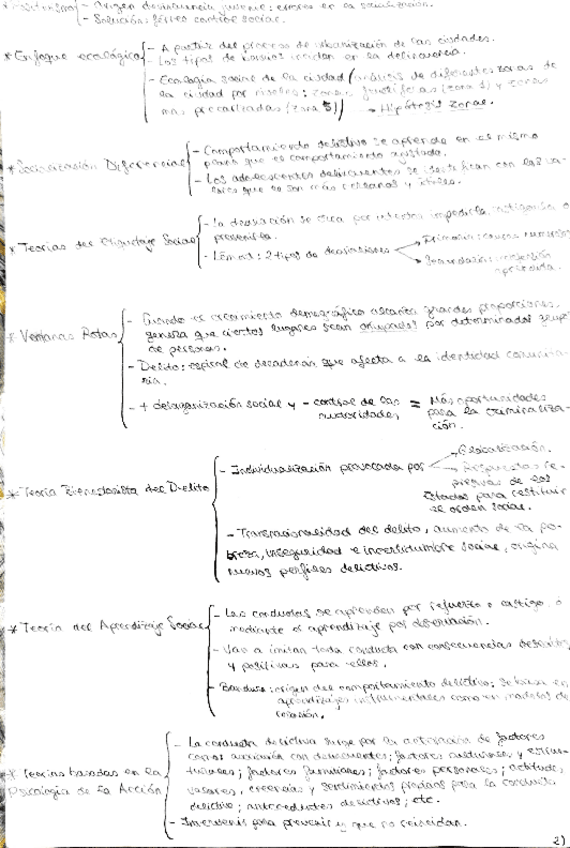 - Origen delincuencia juvenil: errores en la socialización.
- Solución: férreo control social.
* Enfoque ecológico
- A partir del proceso de urbanización de las ciudades.
- Los tipos de barrios inciden en la delincuencia.
- Ecología social de la ciudad (análisis de diferentes zonas de
la ciudad por niveles: zonas (zona 1) y zonas
más precarizadas (zona 5) → Hipótesis zonal.
* Socialización Diferencial
- Comportamiento delictivo se aprende en el mismo
plano que el comportamiento ajustado.
- Los adolescentes delincuentes se identifican con los va-
lores que le son más cercanos y útiles.
* Teorías del Etiquetaje Social
- La desviación se crea por intentos impedirla, mitigarla o
prevenirla.
- Lemert: 2 tipos de desviaciones
→ Primaria: causas numerosas
→ Secundaria: 
aprendida.
* Ventanas Rotas
- Cuando el crecimiento demográfico alcanza grandes proporciones,
genera que ciertos lugares sean ocupados por determinados grupos
de personas.
- Delito: espiral de decadencia que afecta a la identidad comunita-
ria.
- + desorganización social y - control de las
autoridades
= Más oportunidades
para la criminaliza-
ción.
* Teoría Bienestarista del Delito
- Individualización provocada por
→ Globalización.
→ Respuestas re-
presivas de los
Estados para restituir
el orden social.
- Transnacionalidad del delito, aumento de la po-
breza, inseguridad e incertidumbre social, origina
nuevos perfiles delictivos.
* Teoría del Aprendizaje Social
- Las conductas se aprenden por refuerzo o castigo o
mediante el aprendizaje por observación.
- Van a imitar toda conducta con consecuencias
y positivas para ellos.
- Bandura: origen del comportamiento delictivo; se basa en
aprendizajes instrumentales como en modelos de
relación.
* Teorías basadas en la
Psicología de la Acción
- La conducta delictiva surge por la activación de factores
como: asociación con delincuentes; factores culturales y estruc-
turales; factores familiares; factores personales; actitudes,
valores, creencias y sentimientos para la conducta
delictiva; antecedentes delictivos; etc.
- Intervenir para prevenir y que no reincidan.
2)